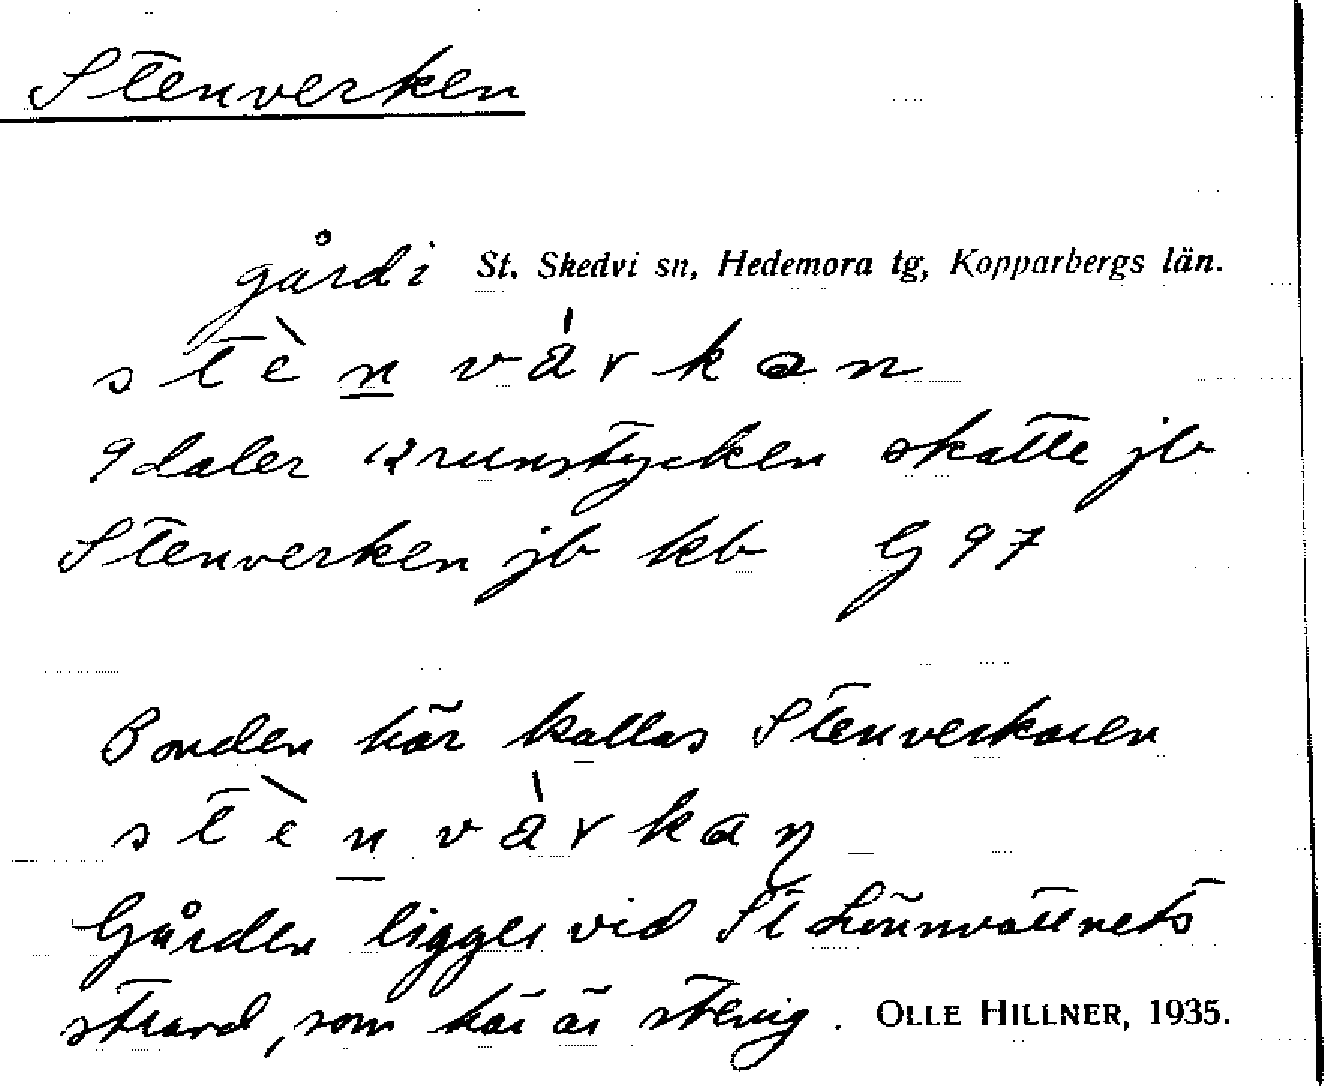 Stenverken
gård i St. Skedvi sn, Hedemora tg, Kopparbergs län.
stèn̲várkan
9 daler 12 runstycken skatte jb
Stenverken jb kb G 97
Bonden här kallas Stenverkaren
stèn̲vàrkaη
Gården ligger vid St Lönnvattnets
strand, som här är stenig. OLLE HILLNER, 1935.